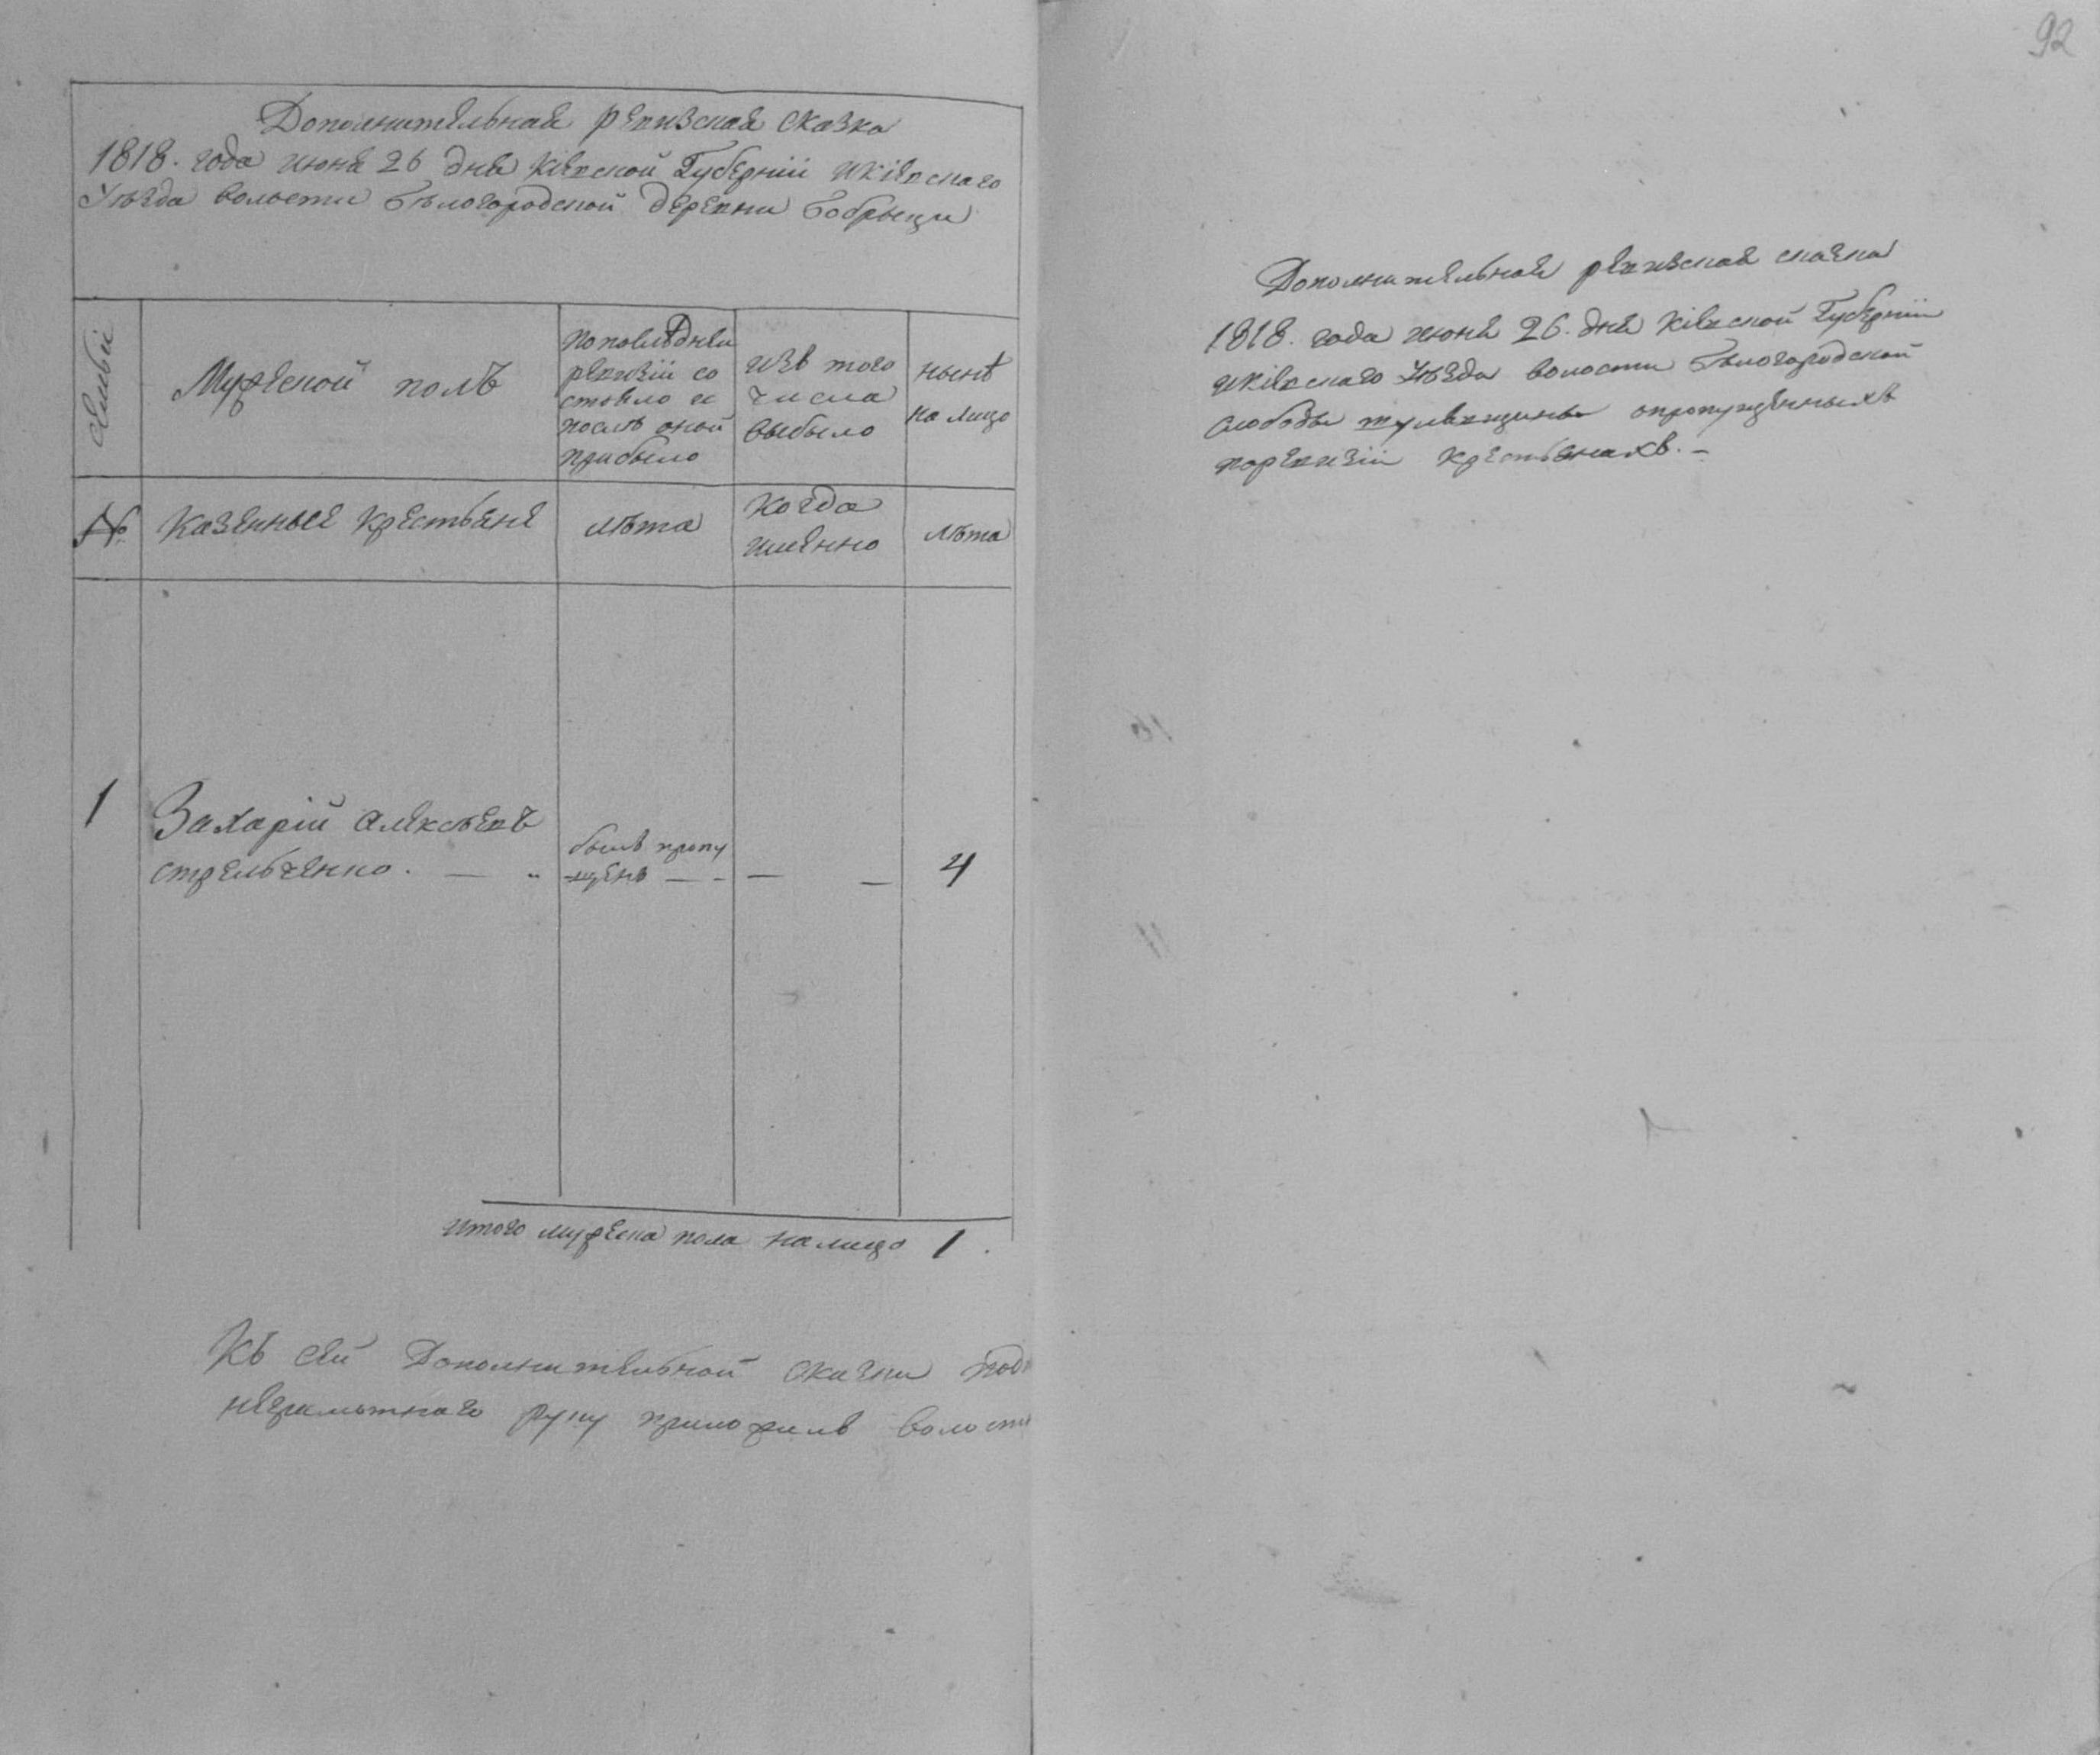 Дополнительная ревизская сказка
1818. года июня 26 дня Кіевской Губерніи и Кіевскаго
Уѣзда волости Бѣлогородской деревни Бобрыци
семьи
Мужеской полъ
по послѣдней
ревизіи со
стояло и
послѣ оной
прибыло
изъ того
числа
выбыло
нынѣ
на лицо
№
Казенные крестьяне
лѣта
когда
именно
лѣта
1
Захарій Алексѣевъ
Стрельченко. — "
былъ пропу
щенъ — -
— —
4
итого мужеска пола на лицо 1.
Къ сей Дополнительной сказки
неграмотнаго руку приложилъ
92
Дополнительная ревизская сказка
1818. года июня 26. дня Кіевской Губерніи
и Кіевскаго Уѣзда волости Бѣлогородской
слободы о пропущенныхъ
по ревизіи крестьянахъ. -